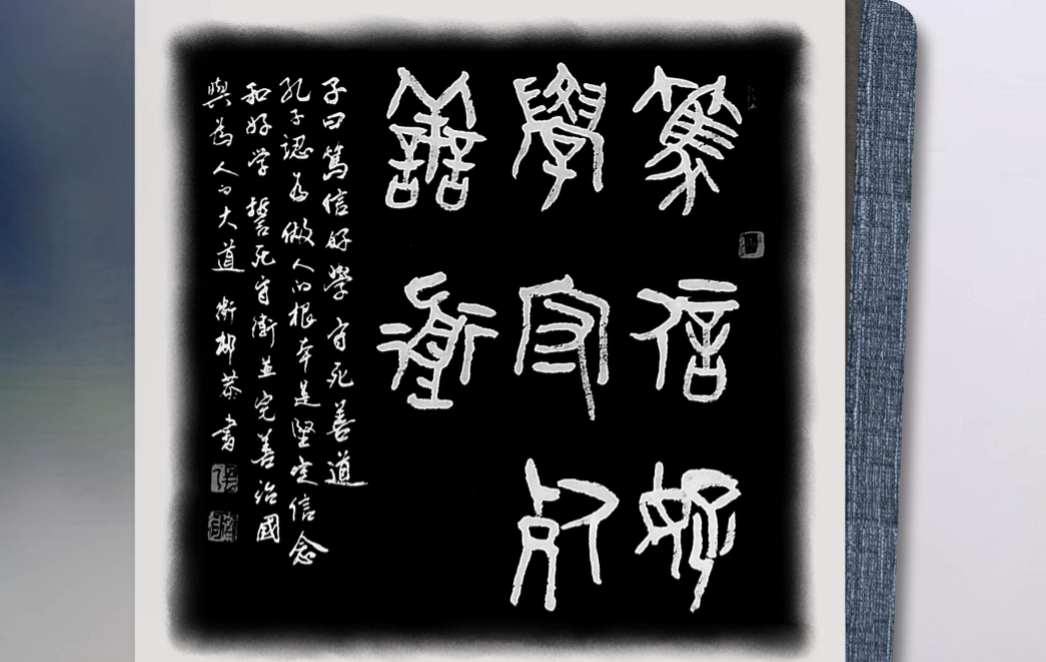 篤信好
學守死
善道
子曰篤信好學守死善道
孔子認為做人的根本是堅定信念
和好学誓死守衛並完善治國
與為人的大道 恭書